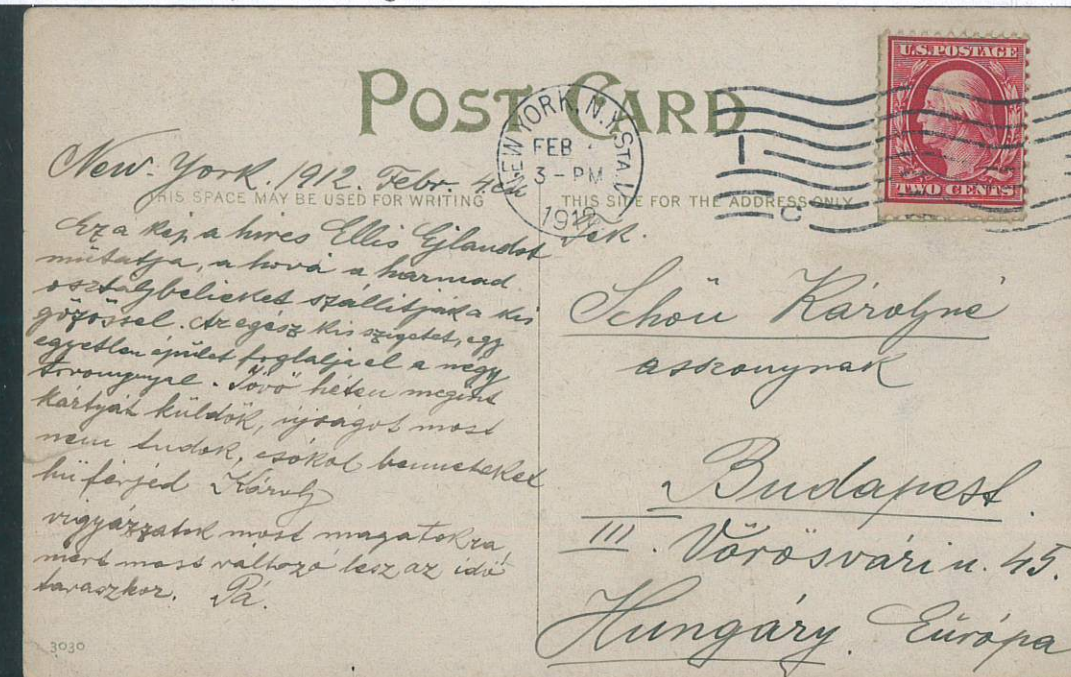 POST CARD
NEW YORK, N.Y. STA. V
FEB
3-PM
1912
U.S. POSTAGE
TWO CENTS
C
THIS SPACE MAY BE USED FOR WRITING
THIS SIDE FOR THE ADDRESS ONLY
New-York. 1912. Febr. 4én
Ez a kép a hires Ellis Ejlandot
mutatja, a hová a harmad
osztálybelieket szállitják a kis
gőzössel. Az egész kis szigetet, egy
egyetlen épület foglalja el a négy
toronnyal. Jövő héten megint
kártyát küldök, ujságot most
nem tudok, csókol benneteket
hű férjed Károly
vigyázzatok most magatokra,
mert most változó lesz az idő
tavaszkor. Pá.
3030
Schön Károlyné
asszonynak
Budapest
III. Vörösvári u. 45.
Hungáry. Európa